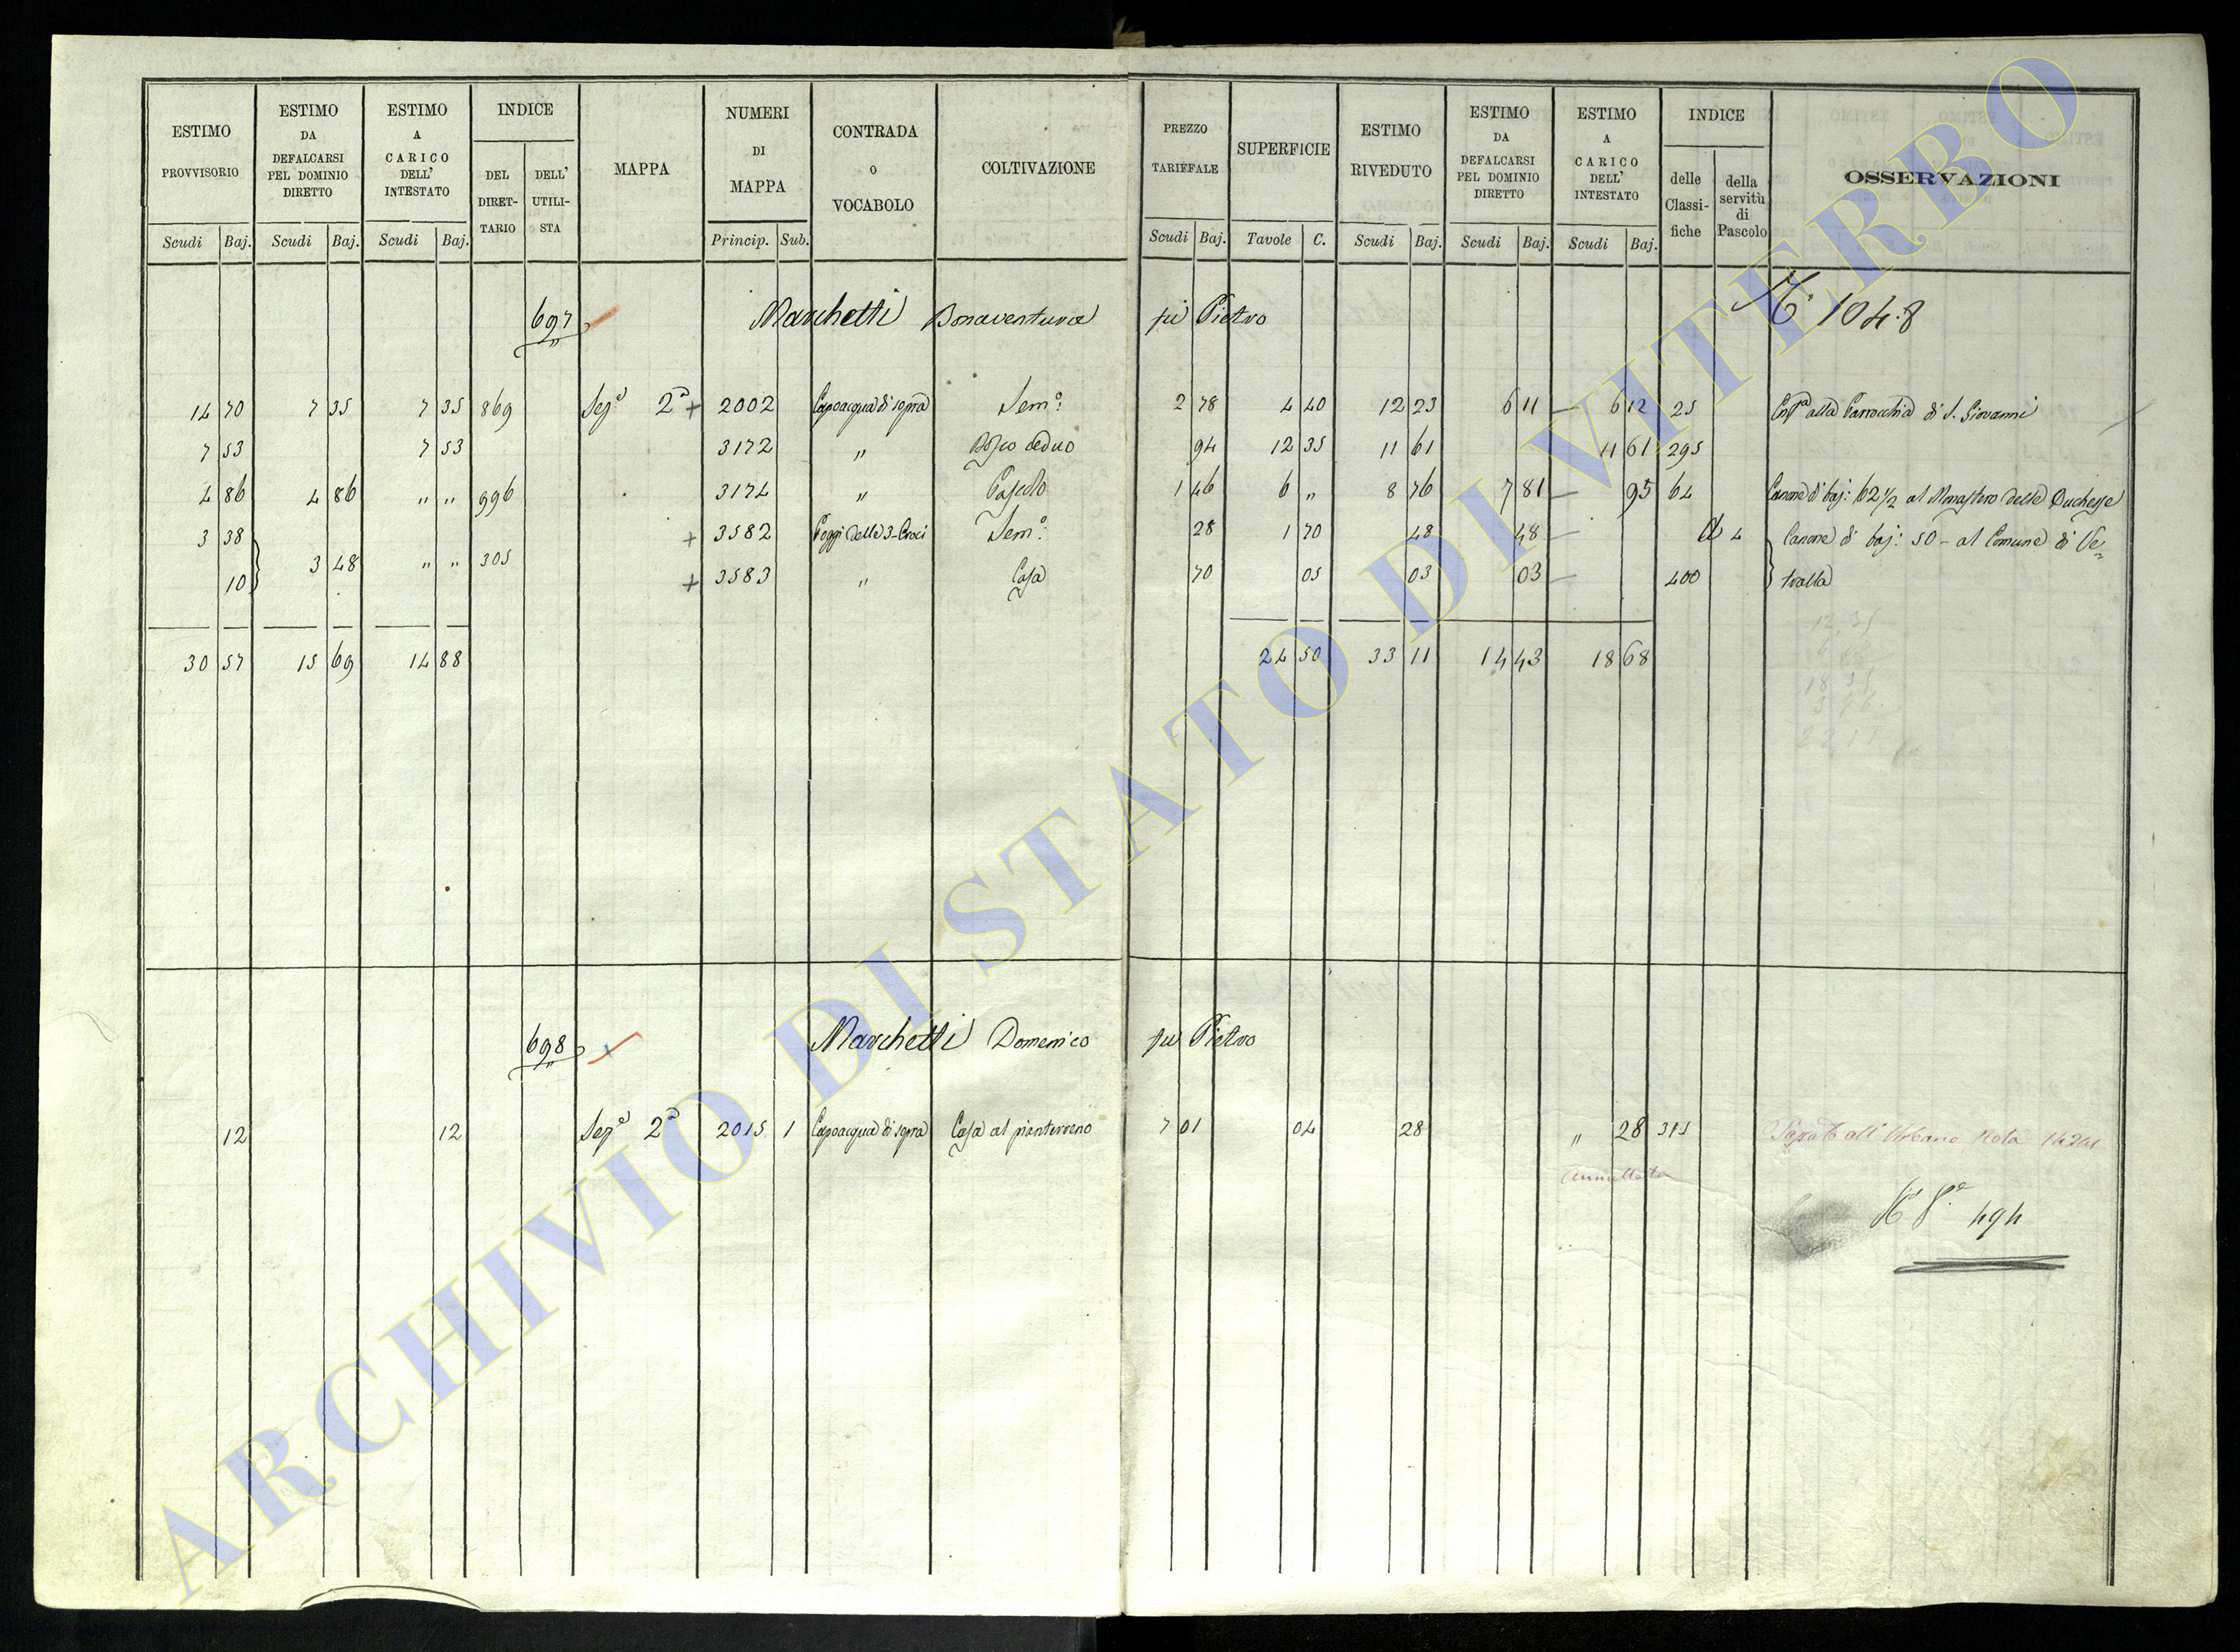 ESTIMO PROVVISORIO | ESTIMO DA DEFALCARSI PEL DOMINIO DIRETTO | ESTIMO A CARICO DELL' INTESTATO | INDICE DEL DIRET-TARIO | DELL' UTILI-STA | MAPPA | NUMERI DI MAPPA | CONTRADA o VOCABOLO | COLTIVAZIONE | PREZZO TARIFFALE | SUPERFICIE | ESTIMO RIVEDUTO | ESTIMO DA DEFALCARSI PEL DOMINIO DIRETTO | ESTIMO A CARICO DELL' INTESTATO | INDICE delle Classi-fiche | della servitù di Pascolo | OSSERVAZIONI
Scudi Baj. | Scudi Baj. | Scudi Baj. | Princip. Sub. | Scudi Baj. | Tavole C. | Scudi Baj. | Scudi Baj. | Scudi Baj.
697 Marchetti Bonaventura fu Pietro 1048
14 70 | 7 35 | 7 35 | 869 | Seze 2a + | 2002 | Capoacqua di sopra | Semo: | 2 78 | 4 40 | 12 23 | 6 11 — | 6 12 | 25 | alla Parrocchia di S. Giovanni
7 53 | 7 53 | 3172 | " | Bosco ceduo | 94 | 12 35 | 11 61 | 11 61 | 295
4 86 | 4 86 | " " | 996 | 3174 | " | Pascolo | 1 46 | 6 " | 8 76 | 7 81 — | 95 | 64 | Canone di baj: 62 1/2 al Monastero delle Duchesse
3 38 | + 3582 | Poggi delle 3-Croci | Semo: | 28 | 1 70 | 48 | 48 — | 4 | Canone di baj: 50 - al Comune di Ve=
3 48 | " " | 305
10 | + 3583 | " | Casa | 70 | 05 | 03 | 03 — | 400 | tralla
30 57 | 15 69 | 14 88 | 24 50 | 33 11 | 14 43 | 18 68
698 Marchetti Domenico fu Pietro
12 | 12 | Seze 2a | 2015 1 | Capoacqua di sopra | Casa al pianterreno | 7 01 | 04 | 28 | " 28 | 315 | Passato all' Urbano Nota
Annullata
494
ARCHIVIO DI STATO DI VITERBO